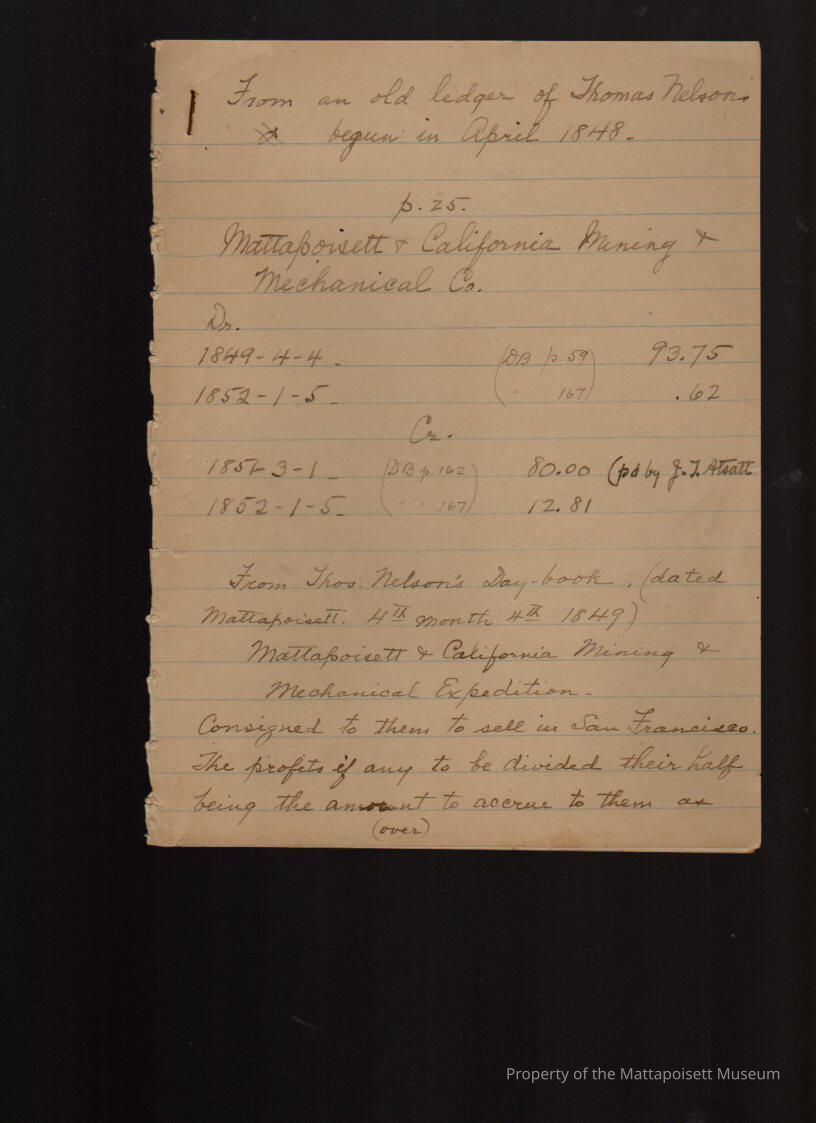 From an old ledger of Thomas Nelson's
begun in April 1848.
p. 25.
Mattapoisett & California Mining &
Mechanical Co.
Dr.
1849-4-4- (DB p. 59) 93.75
1852-1-5- ( " 167) .62
Cr.
1851-3-1- (DB p. 162) 80.00 (pd by J. T. Atsatt
1852-1-5- ( " " 167) 12.81
From Thos. Nelson's Day-book, (dated
Mattapoisett. 4th month 4th 1849)
Mattapoisett & California Mining &
Mechanical Expedition-
Consigned to them to sell in San Francisco.
The profits if any to be divided their half
being the amount to accrue to them as
(over)
Property of the Mattapoisett Museum